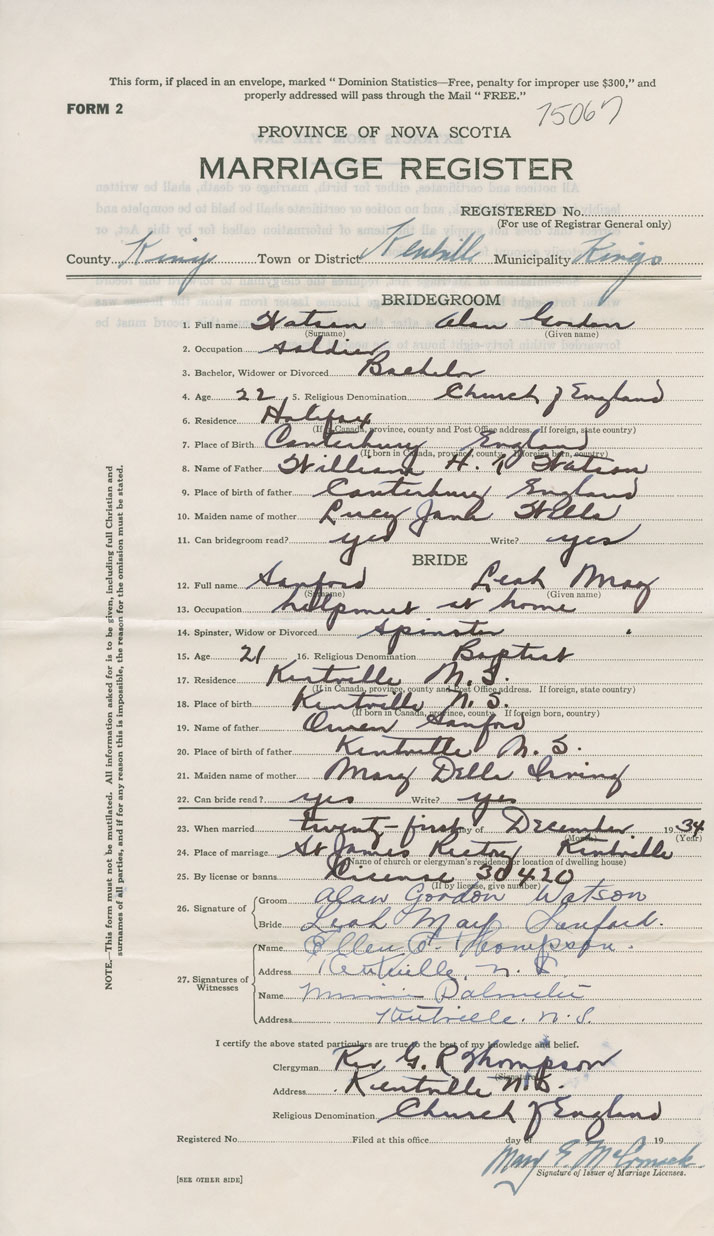 This form, if placed in an envelope, marked " Dominion Statistics—Free, penalty for improper use $300," and
properly addressed will pass through the Mail " FREE."
FORM 2
75067
PROVINCE OF NOVA SCOTIA
MARRIAGE REGISTER
REGISTERED No.
(For use of Registrar General only)
County Kings Town or District Kentville Municipality Kings
BRIDEGROOM
1. Full name Watson Alan Gordon
(Surname) (Given name)
2. Occupation soldier
3. Bachelor, Widower or Divorced Bachelor
4. Age 22 5. Religious Denomination Church of England
6. Residence Halifax
(If in Canada, province, county and Post Office address. If foreign, state country)
7. Place of Birth Canterbury England
(If born in Canada, province, county. If foreign born, country)
8. Name of Father William H. Watson
9. Place of birth of father Canterbury England
10. Maiden name of mother Lucy Jane Wells
11. Can bridegroom read? yes Write? yes
BRIDE
12. Full name Sanford Leah May
(Surname) (Given name)
13. Occupation helpmeet at home
14. Spinster, Widow or Divorced Spinster
15. Age 21 16. Religious Denomination Baptist
17. Residence Kentville N. S.
(If in Canada, province, county and Post Office address. If foreign, state country)
18. Place of birth Kentville N. S.
(If born in Canada, province, county. If foreign born, country)
19. Name of father Owen Sanford
20. Place of birth of father Kentville N. S.
21. Maiden name of mother Mary Delle Irving
22. Can bride read? yes Write? yes
23. When married twenty-first day of December 1934
(Month) (Year)
24. Place of marriage St James Rectory Kentville
(Name of church or clergyman's residence or location of dwelling house)
25. By license or banns License 30420
(If by license, give number)
26. Signature of
Groom Alan Gordon Watson
Bride Leah May Sanford.
27. Signatures of Witnesses
Name Ellen E. Thompson.
Address Kentville, N. S.
Name Minnie Palmeter
Address Kentville. N. S.
I certify the above stated particulars are true to the best of my knowledge and belief.
Clergyman Rev G. R Thompson
Address Kentville N.S.
Religious Denomination Church of England
Registered No. Filed at this office day of 19
Mary E. McCormack
Signature of Issuer of Marriage Licenses.
[SEE OTHER SIDE]
NOTE.—This form must not be mutilated. All information asked for is to be given, including full Christian and
surnames of all parties, and if for any reason this is impossible, the reason for the omission must be stated.